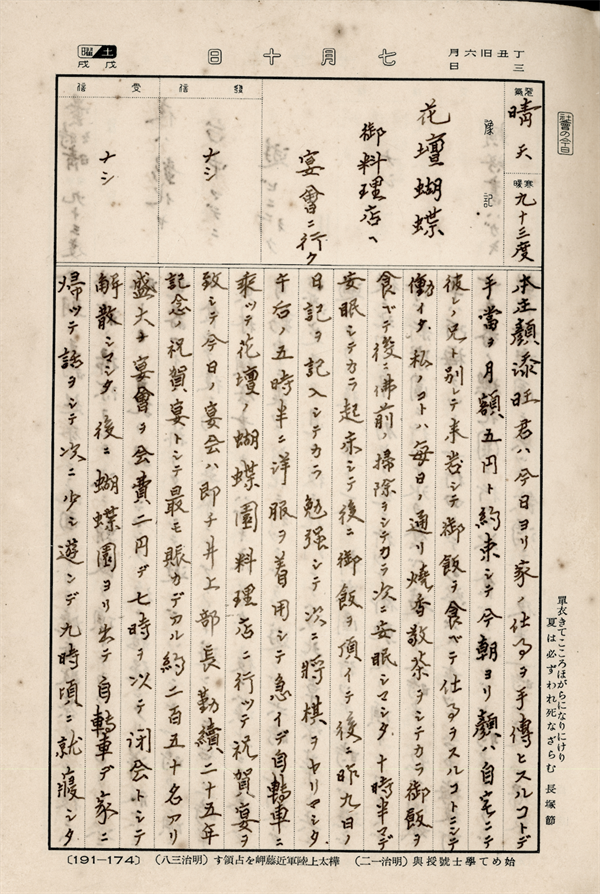 丁丑 旧六月三日
七月十日
土曜 戊戌
社會の今日
天氣 晴天
寒暖 九十三度
豫記
花壇蝴蝶
御料理店ヘ
宴會ニ行ク
發信
ナシ
受信
ナシ
本庄顏添旺君ハ今日ヨリ家ノ仕事ヲ手傳ヒスルコトデ
手當ヲ月額五円ト約束シテ今朝ヨリ顏ハ自宅ニテ
彼レノ兄ト別レテ來岩シテ御飯ヲ食ベテ仕事ヲスルコトニシテ
働イタ、私ノコトハ毎日ノ通リ燒香敬茶ヲシテカラ御飯ヲ
食ベテ後ニ佛前ノ掃除ヲシテカラ次ニ安眠シマシタ、十時半マデ
安眠シテカラ起床シテ後ニ御飯ヲ頂イテ後ニ昨九日ノ
日記ヲ記入シテカラ勉强シテ次ニ將棋ヲヤリマシタ、
午后ノ五時半ニ洋服ヲ着用シテ急イデ自轉車ニ
乘ッテ花壇ノ蝴蝶園料理店ニ行ッテ祝賀宴ヲ
致シテ今日ノ宴会ハ即チ井上部長ノ勤續二十五年
記念ノ祝賀宴トシテ最モ賑カデアル約二百五十名アリ
盛大ナ宴會ヲ会費二円デ七時ヲ以テ閉会トシテ
解散シマシタ、後ニ蝴蝶園ヨリ出テ自轉車デ家ニ
帰ッテ話ヲシテ次ニ少シ遊ンデ九時頃ニ就寢シタ、
單衣きてこころほがらになりにけり
夏は必ずわれ死なざらむ 長塚 節
始めて學士號授與(明治一二) 樺太上陸軍近藤岬を占領す(明治三八)
(191―174)